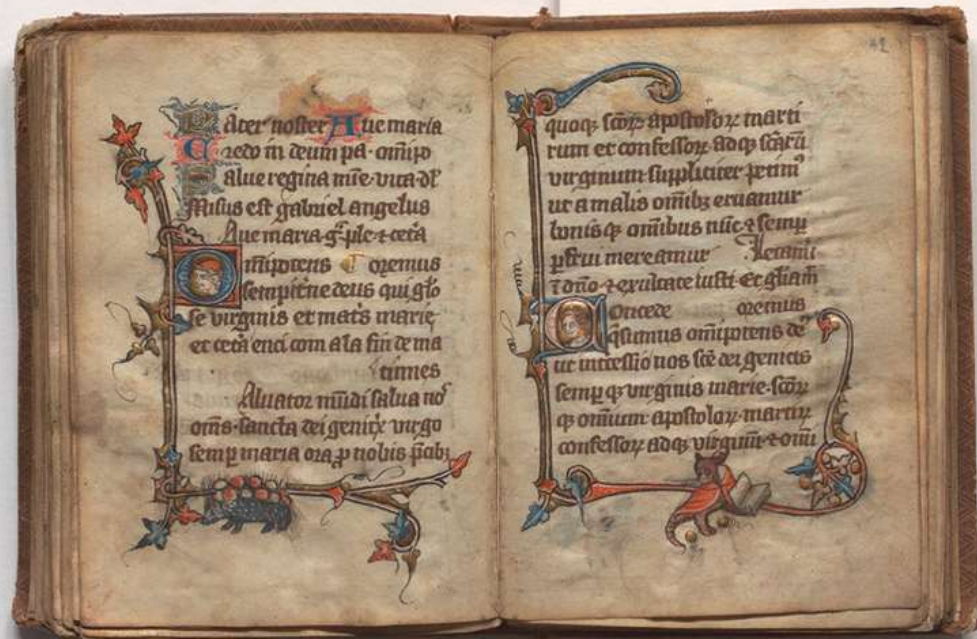 Pater noster Aue maria
Credo in deum pa· omīpo
Salue regina mīe· vita· dl̄
Misus est gabriel angelus
Aue maria· g̃· ple· ⁊ cetā
Omīpotens Oremus
sempitne deus qui glo
se virginis et mat̄s marie
et cetā enci com a la fin de ma
tines
Aluator mūdi salua no᷒
om̄s· sancta dei genitx̄ virgo
semp̱ maria ora ꝓ nobis p̄cibꝫ
42
quoqꝫ sc̄oꝝ apostoloꝝ marti
rum et confessoꝝ adqꝫ sc̄arū
virginum suppliciter petim᷒
ut a malis om̄ibꝫ eruamur
bonis qꝫ omnibus nūc ⁊ semp̱
ꝑfrui mereamur Letami
ī dn̄o ⁊ exultate iusti Et gl̄iam̄
Concede oremus
q̄sumus omīpotens de᷒
ut intcessio nos sc̄e dei genitcis
semp̱ qꝫ virginis marie· sc̄oꝝ
qꝫ omnium apostoloꝝ· martiꝝ
confessoꝝ adqꝫ virginū· ⁊ omī